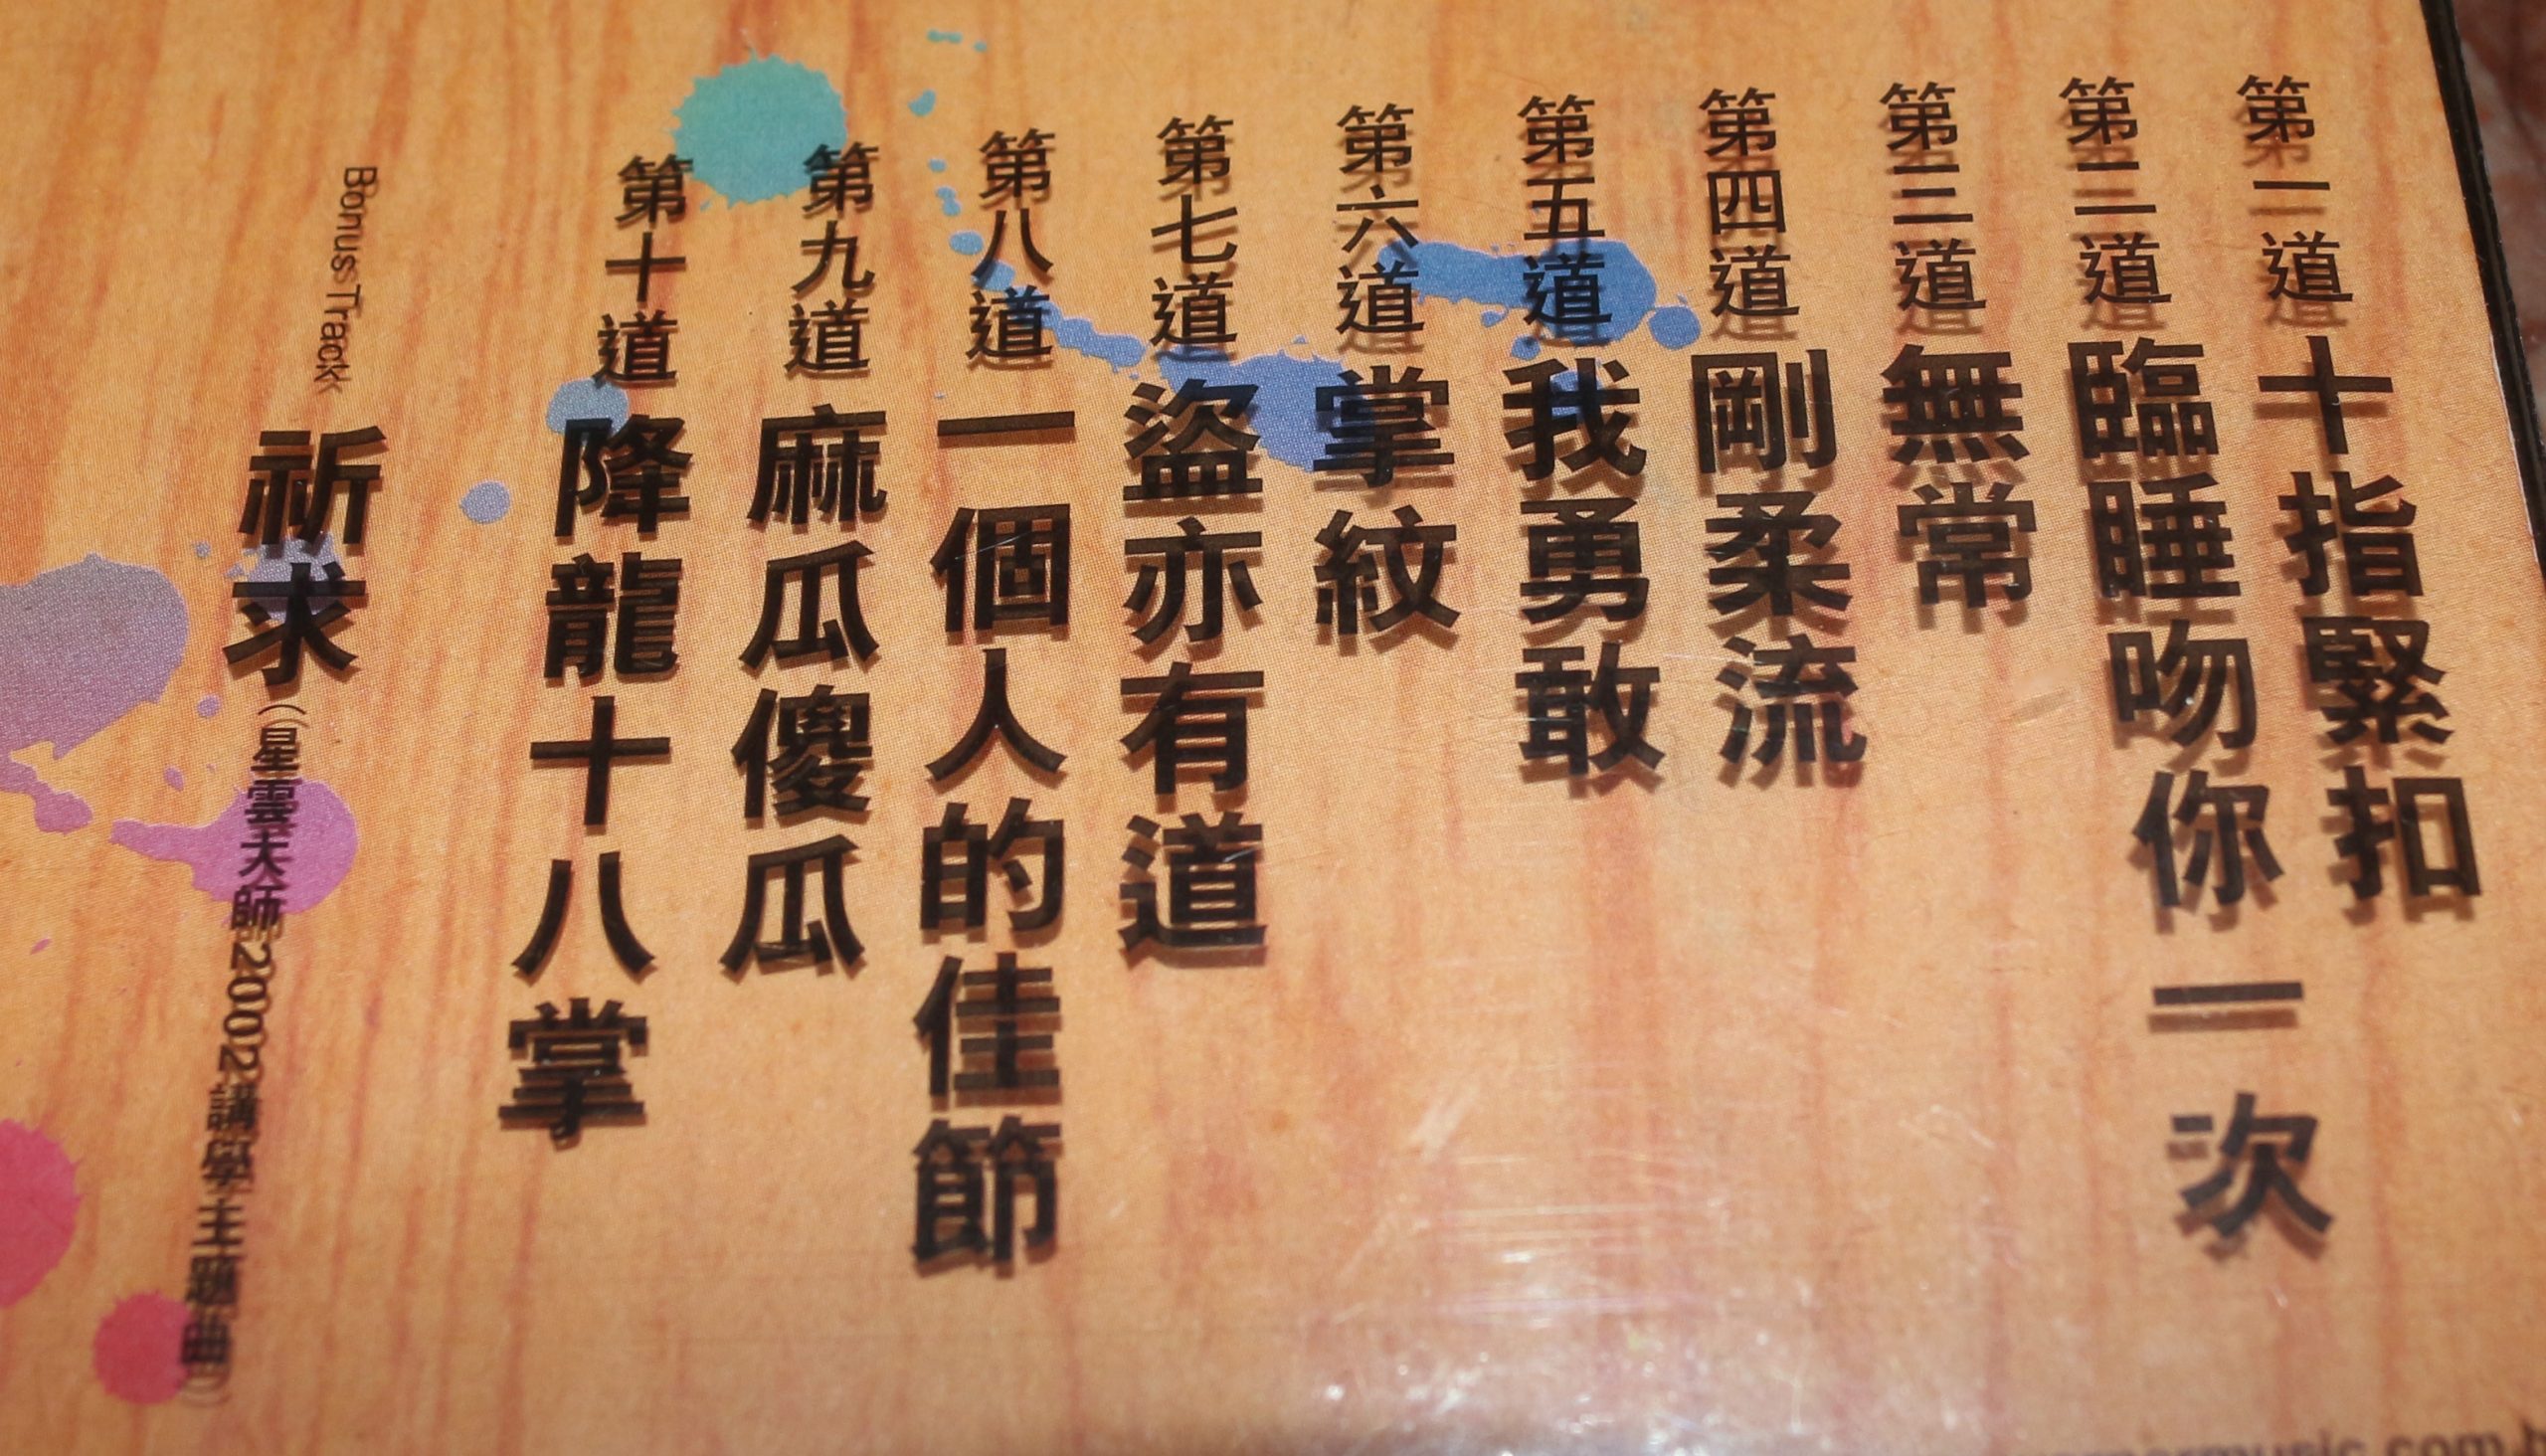 第一道 十指緊扣
第二道 臨睡吻你一次
第三道 無常
第四道 剛柔流
第五道 我勇敢
第六道 掌紋
第七道 盜亦有道
第八道 一個人的佳節
第九道 麻瓜傻瓜
第十道 降龍十八掌
Bonus Track 祈求（星雲大師2002講學主題曲）